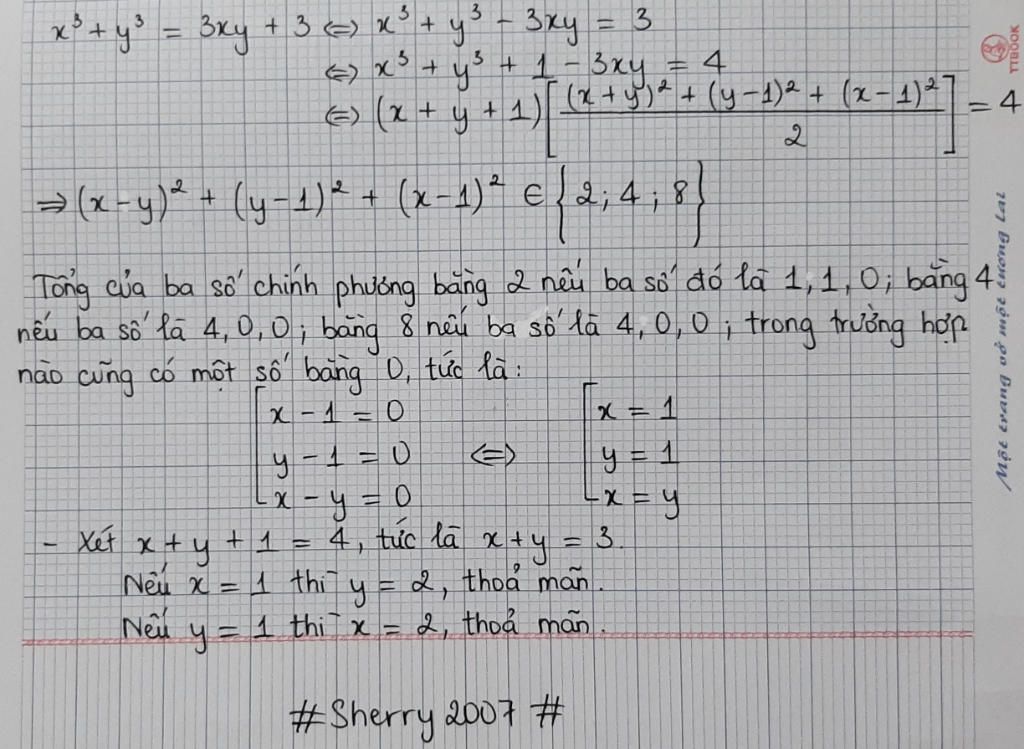 x³ + y³ = 3xy + 3 ⇔ x³ + y³ - 3xy = 3
⇔ x³ + y³ + 1 - 3xy = 4
⇔ (x + y + 1)[((x + y)² + (y - 1)² + (x - 1)²)/2] = 4
⇒ (x - y)² + (y - 1)² + (x - 1)² ∈ {2; 4; 8}
Tổng của ba số chính phương bằng 2 nếu ba số đó là 1, 1, 0; bằng 4
nếu ba số là 4, 0, 0; bằng 8 nếu ba số là 4, 0, 0; trong trường hợp
nào cũng có một số bằng 0, tức là:
[x - 1 = 0 [x = 1
y - 1 = 0 ⇔ y = 1
x - y = 0 x = y
- Xét x + y + 1 = 4, tức là x + y = 3.
Nếu x = 1 thì y = 2, thoả mãn.
Nếu y = 1 thì x = 2, thoả mãn.
#Sherry 2007 #
TTBOOK
Một trang vở một tương lai